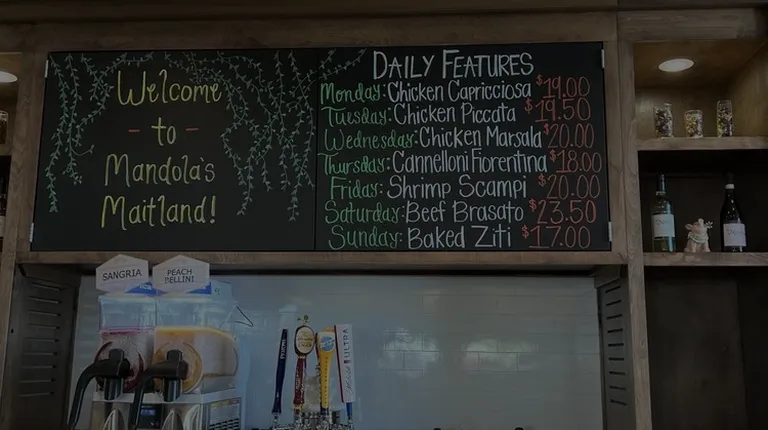 Welcome
- to -
Mandola's
Maitland!
DAILY FEATURES
Monday: Chicken Capricciosa $19.00
Tuesday: Chicken Piccata $19.50
Wednesday: Chicken Marsala $20.00
Thursday: Cannelloni Fiorentina $18.00
Friday: Shrimp Scampi $20.00
Saturday: Beef Brasato $23.50
Sunday: Baked Ziti $17.00
SANGRIA
PEACH
BELLINI
ULTRA